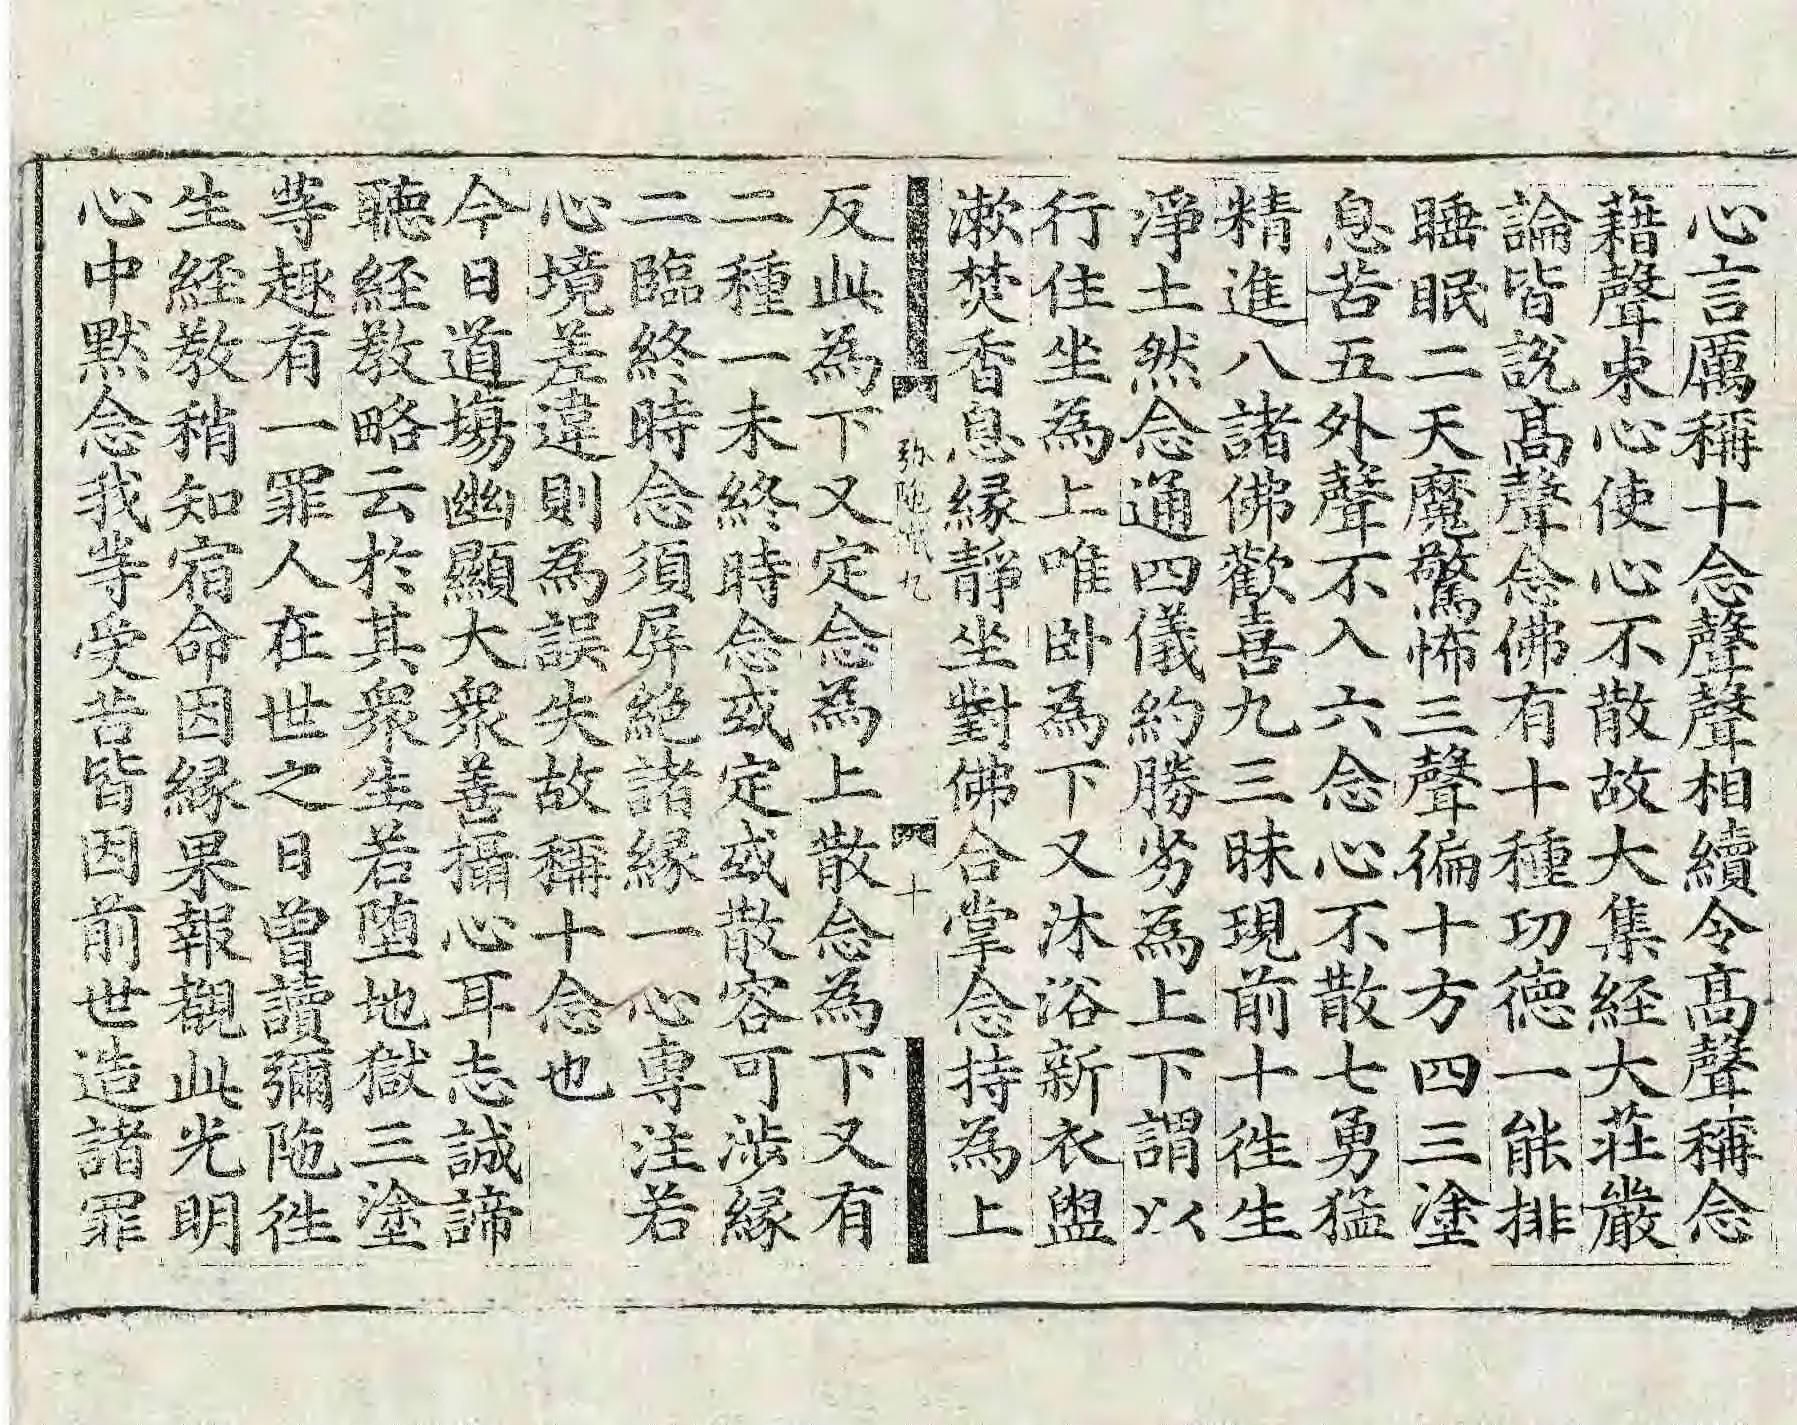 心言厲稱十念聲聲相續令高聲稱念
藉聲束心使心不散故大集経大莊嚴
論皆説高聲念佛有十種功徳一能排
睡眠二天魔驚怖三聲徧十方四三塗
息苦五外聲不入六念心不散七勇猛
精進八諸佛歡喜九三昧現前十徃生
淨土然念通四儀約勝劣為上下謂以
行住坐為上唯卧為下又沐浴新衣盥
漱焚香息縁靜坐對佛合掌念持為上
弥陁懴九
十
反此為下又定念為上散念為下又有
二種一未終時念或定或散容可渉縁
二臨終時念須屏絶諸縁一心專注若
心境差違則為誤失故稱十念也
今日道塲幽顯大衆善攝心耳志誠諦
聽経教略云於其衆生若堕地獄三塗
等趣有一罪人在世之日曽讀彌陁徃
生経教稍知宿命因縁果報覩此光明
心中黙念我等受苦皆因前世造諸罪